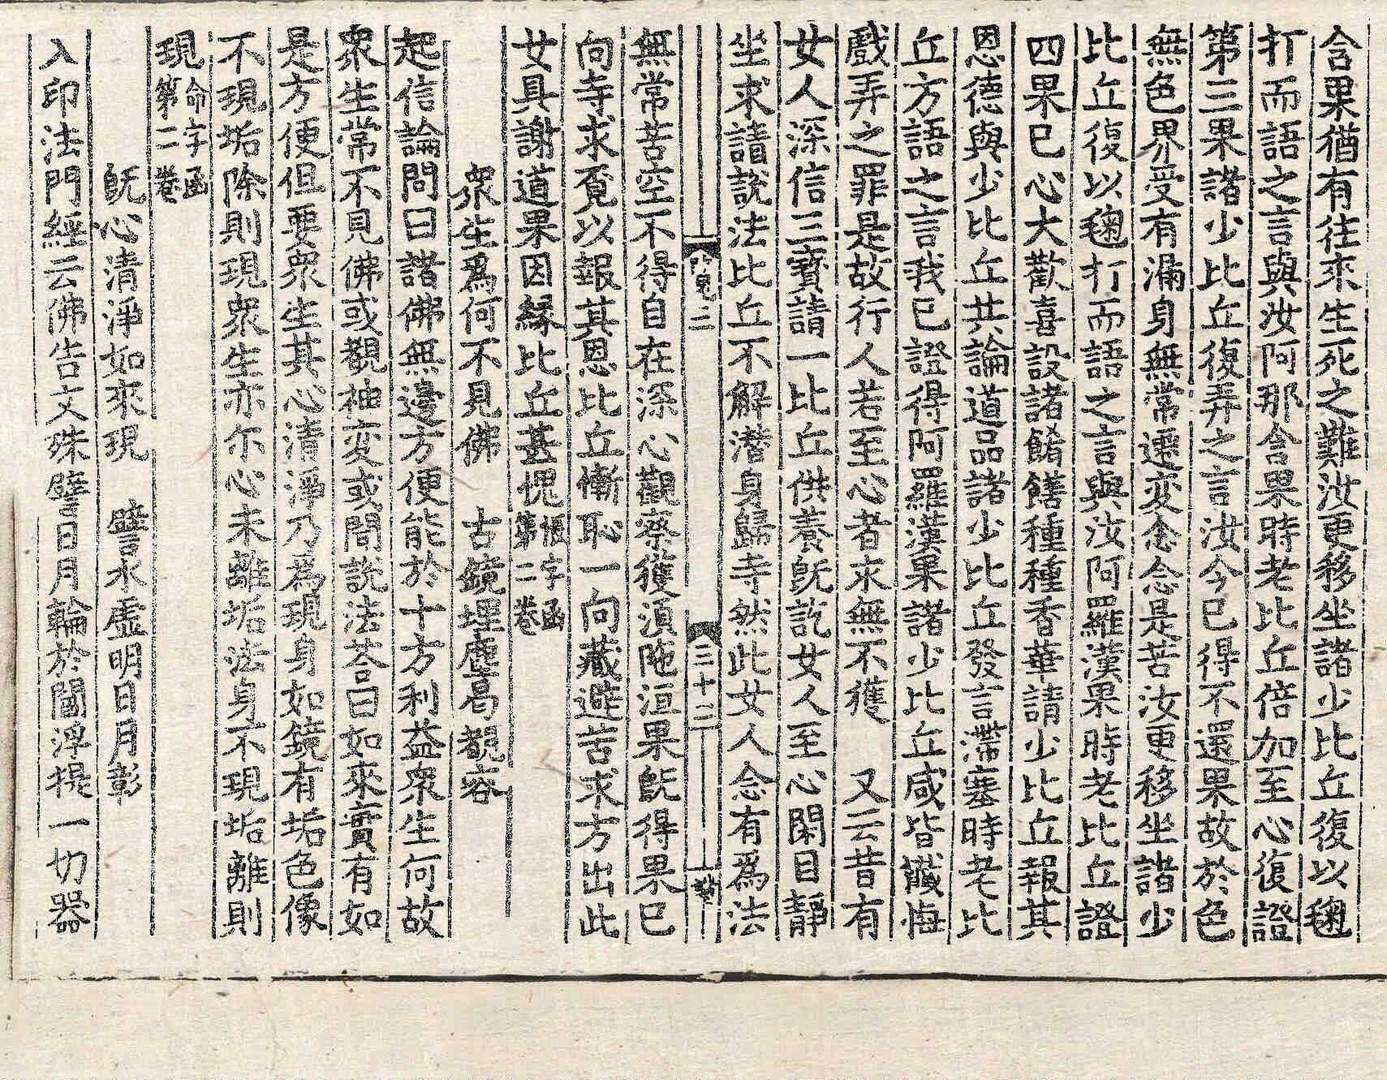 含果猶有往來生死之難汝更移坐諸少比丘復以毱
打而語之言與汝阿那含果時老比丘倍加至心復證
第三果諸少比丘復弄之言汝今已得不還果故於色
無色界受有漏身無常遷変念念是苦汝更移坐諸少
比丘復以毱打而語之言與汝阿羅漢果時老比丘證
四果已心大歡喜設諸餚饍種種香華請少比丘報其
恩德與少比丘共論道品諸少比丘發言滯塞時老比
丘方語之言我已證得阿羅漢果諸少比丘咸皆懺悔
戲弄之罪是故行人若至心者求無不獲　又云昔有
女人深信三寶請一比丘供養旣訖女人至心閉目靜
坐求請說法比丘不解潛身歸寺然此女人念有爲法
二
三十二
無常苦空不得自在深心觀察獲湏陁洹果旣得果已
向寺求覔以報其恩比丘慚恥一向藏避苦求方出此
女具謝道果因緣比丘甚愧
字函
第二卷
衆生爲何不見佛　古鏡埋塵曷覩容
起信論問曰諸佛無邊方便能於十方利益衆生何故
衆生常不見佛或覩神变或聞說法荅曰如來實有如
是方便但要衆生其心清淨乃爲現身如鏡有垢色像
不現垢除則現衆生亦尓心未離垢法身不現垢離則
現
命字函
第二卷
旣心清淨如來現　譬水虛明日月彰
入印法門經云佛告文殊譬日月輪於閻浮提一切器